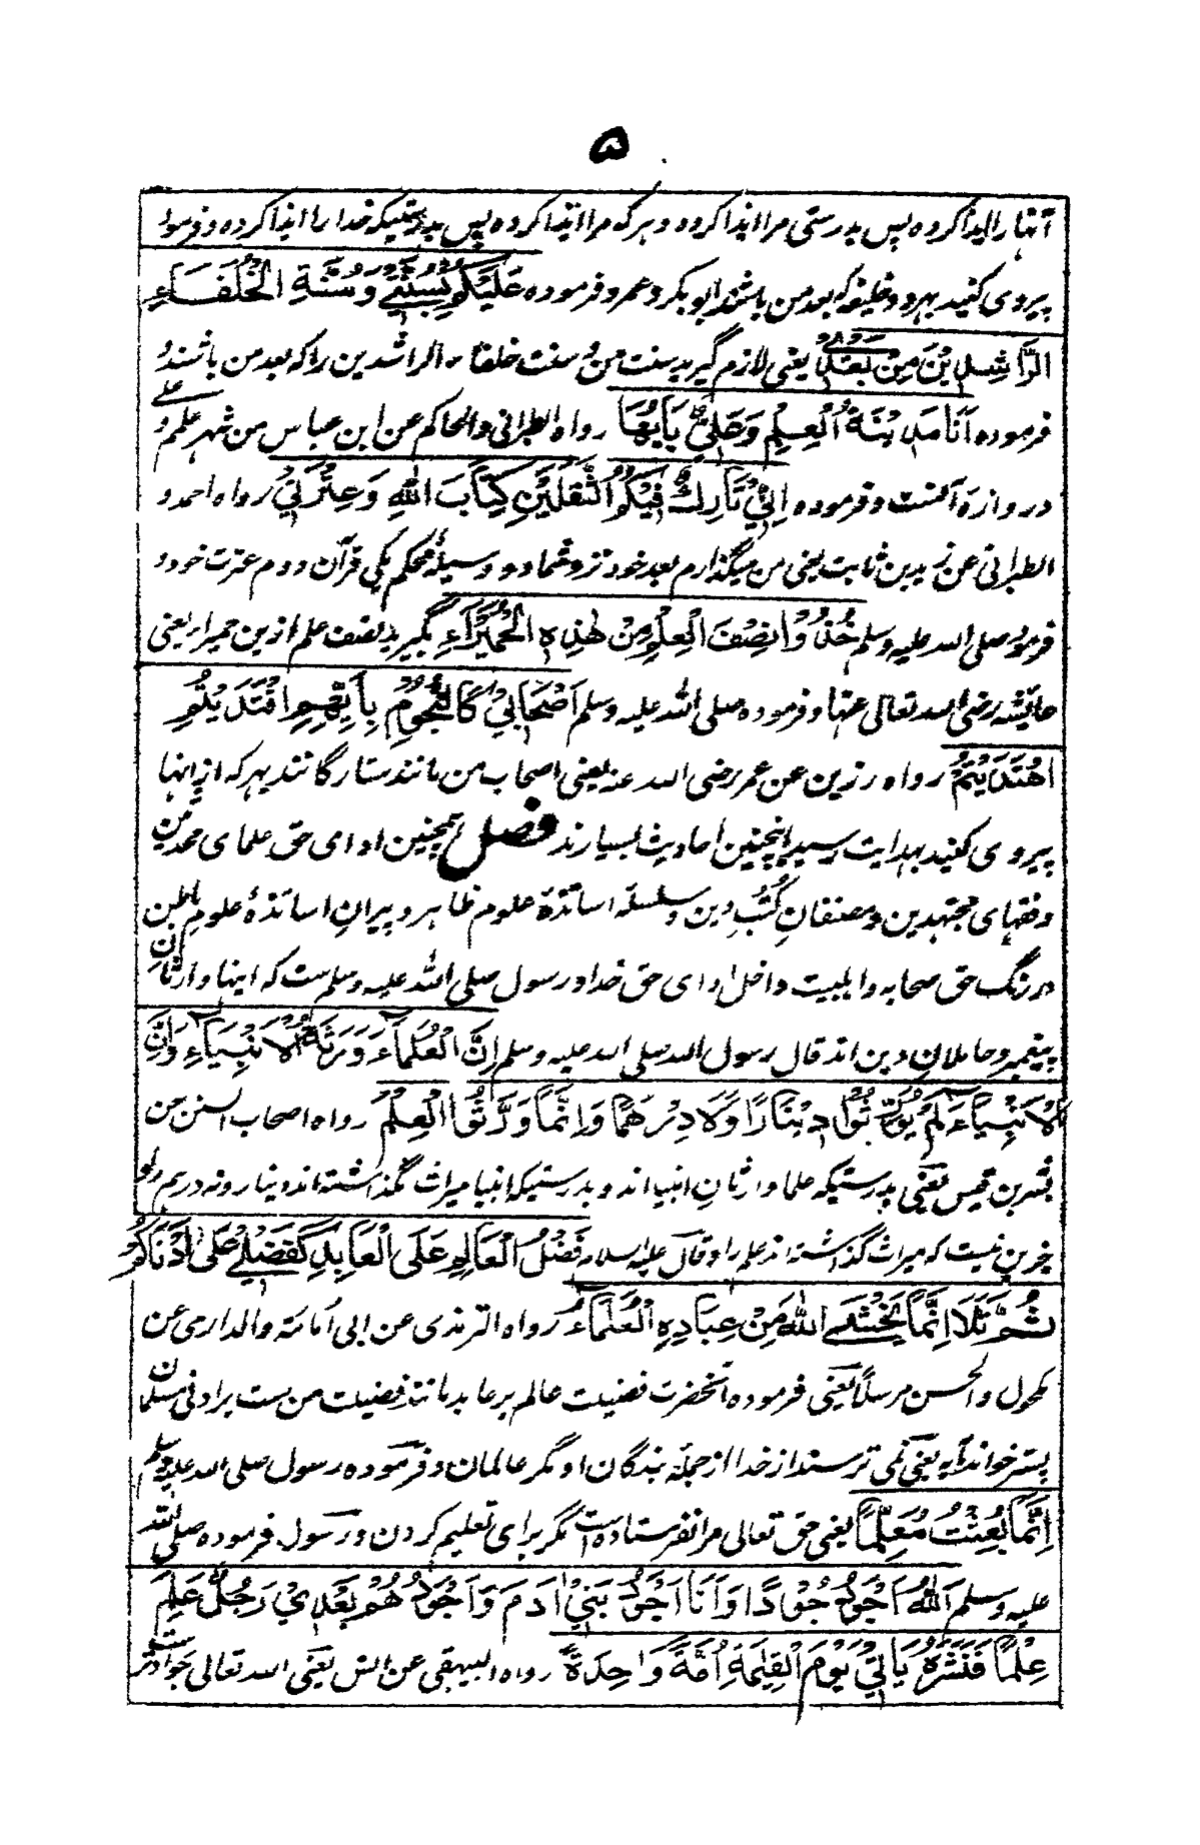 ۵
آنها را ایذا کرده پس بدرستی مرا ایذا کرده و هر که مرا ایذا کرده پس بدرستیکه خدا را ایذا کرده و فرمود
پیروی کنید بهر دو خلیفه که بعد من باشند ابوبکر و عمر و فرموده عَلَیْکُمْ بِسُنَّتِیْ وَسُنَّةِ الْخُلَفَاءِ
الرَّاشِدِیْنَ مِنْ بَعْدِیْ یعنی لازم گیرید سنت من و سنت خلفاء الراشدین را که بعد من باشند و
فرموده اَنَا مَدِیْنَةُ الْعِلْمِ وَعَلِیٌّ بَابُهَا رواه الطبرانی والحاکم عن ابن عباس من شهر علم و علی
دروازهٔ آنست و فرموده اِنِّیْ تَارِكٌ فِیْکُمُ الثَّقَلَیْنِ کِتَابَ اللّٰهِ وَعِتْرَتِیْ رواه احمد و
الطبرانی عن زید بن ثابت یعنی من میگذارم بعد خود نزد شما دو وسیلهٔ محکم یکی قرآن دوم عترت خود و
فرمود صلی الله علیه وسلم خُذُوْا نِصْفَ الْعِلْمِ مِنْ هٰذِهِ الْحُمَیْرَاءِ بگیرید نصف علم ازین حمیرا یعنی
عایشه رضی الله تعالی عنها و فرموده صلی الله علیه وسلم اَصْحَابِیْ کَالنُّجُوْمِ بِاَیِّهِمِ اقْتَدَیْتُمْ
اِهْتَدَیْتُمْ رواه رزین عن عمر رضی الله عنه یعنی اصحاب من مانند ستارگانند بهر که از اینها
پیروی کنید بهدایت رسید اینچنین احادیث بسیارند فصل همچنین ادای حق علمای محدثین
و فقهای مجتهدین و مصنفانِ کُتُبِ دین و سلسلهٔ اساتذهٔ علوم ظاهر و پیرانِ اساتذهٔ علومِ باطن
در رنگ حق صحابه و اهلبیت داخل ادای حق خدا و رسول صلی الله علیه وسلم ست که اینها وارثانِ
پیغمبر و حاملانِ دین اند قال رسول الله صلی الله علیه وسلم اِنَّ الْعُلَمَاءَ وَرَثَةُ الْاَنْبِیَاءِ وَاِنَّ
الْاَنْبِیَاءَ لَمْ یُوَرِّثُوْا دِیْنَارًا وَّلَا دِرْهَمًا وَاِنَّمَا وَرَّثُوا الْعِلْمَ رواه اصحاب السنن عن
قیس یعنی بدرستیکه علما وارثانِ انبیا اند و بدرستیکه انبیا میراث نگذاشته اند دینار و نه درهم
جز این نیست که میراث گذاشته اند علم را و قال علیه السلام فَضْلُ الْعَالِمِ عَلَی الْعَابِدِ کَفَضْلِیْ عَلٰی اَدْنَاکُمْ
ثُمَّ تَلَا اِنَّمَا یَخْشَی اللّٰهَ مِنْ عِبَادِهِ الْعُلَمَاءُ رواه الترمذی عن ابی اُمامة والدارمی عن
مکحول والحسن مرسلاً یعنی فرموده آنحضرت فضیلت عالم بر عابد مانند فضیلت من ست بر ادنی مسلمان
پستر خواند آیه یعنی نمی ترسند از خدا از جمله بندگان او مگر عالمان و فرموده رسول صلی الله علیه وسلم
اِنَّمَا بُعِثْتُ مُعَلِّمًا یعنی حق تعالی مرا نفرستاده است مگر برای تعلیم کردن و رسول فرموده صلی الله
علیه وسلم اَللّٰهُ اَجْوَدُ جُوْدًا وَاَنَا اَجْوَدُ بَنِیْ اٰدَمَ وَاَجْوَدُهُمْ بَعْدِیْ رَجُلٌ عَلِمَ
عِلْمًا فَنَشَرَهٗ یَاْتِیْ یَوْمَ الْقِیٰمَةِ اُمَّةً وَّاحِدَةً رواه البیهقی عن انس یعنی الله تعالی جوادتر